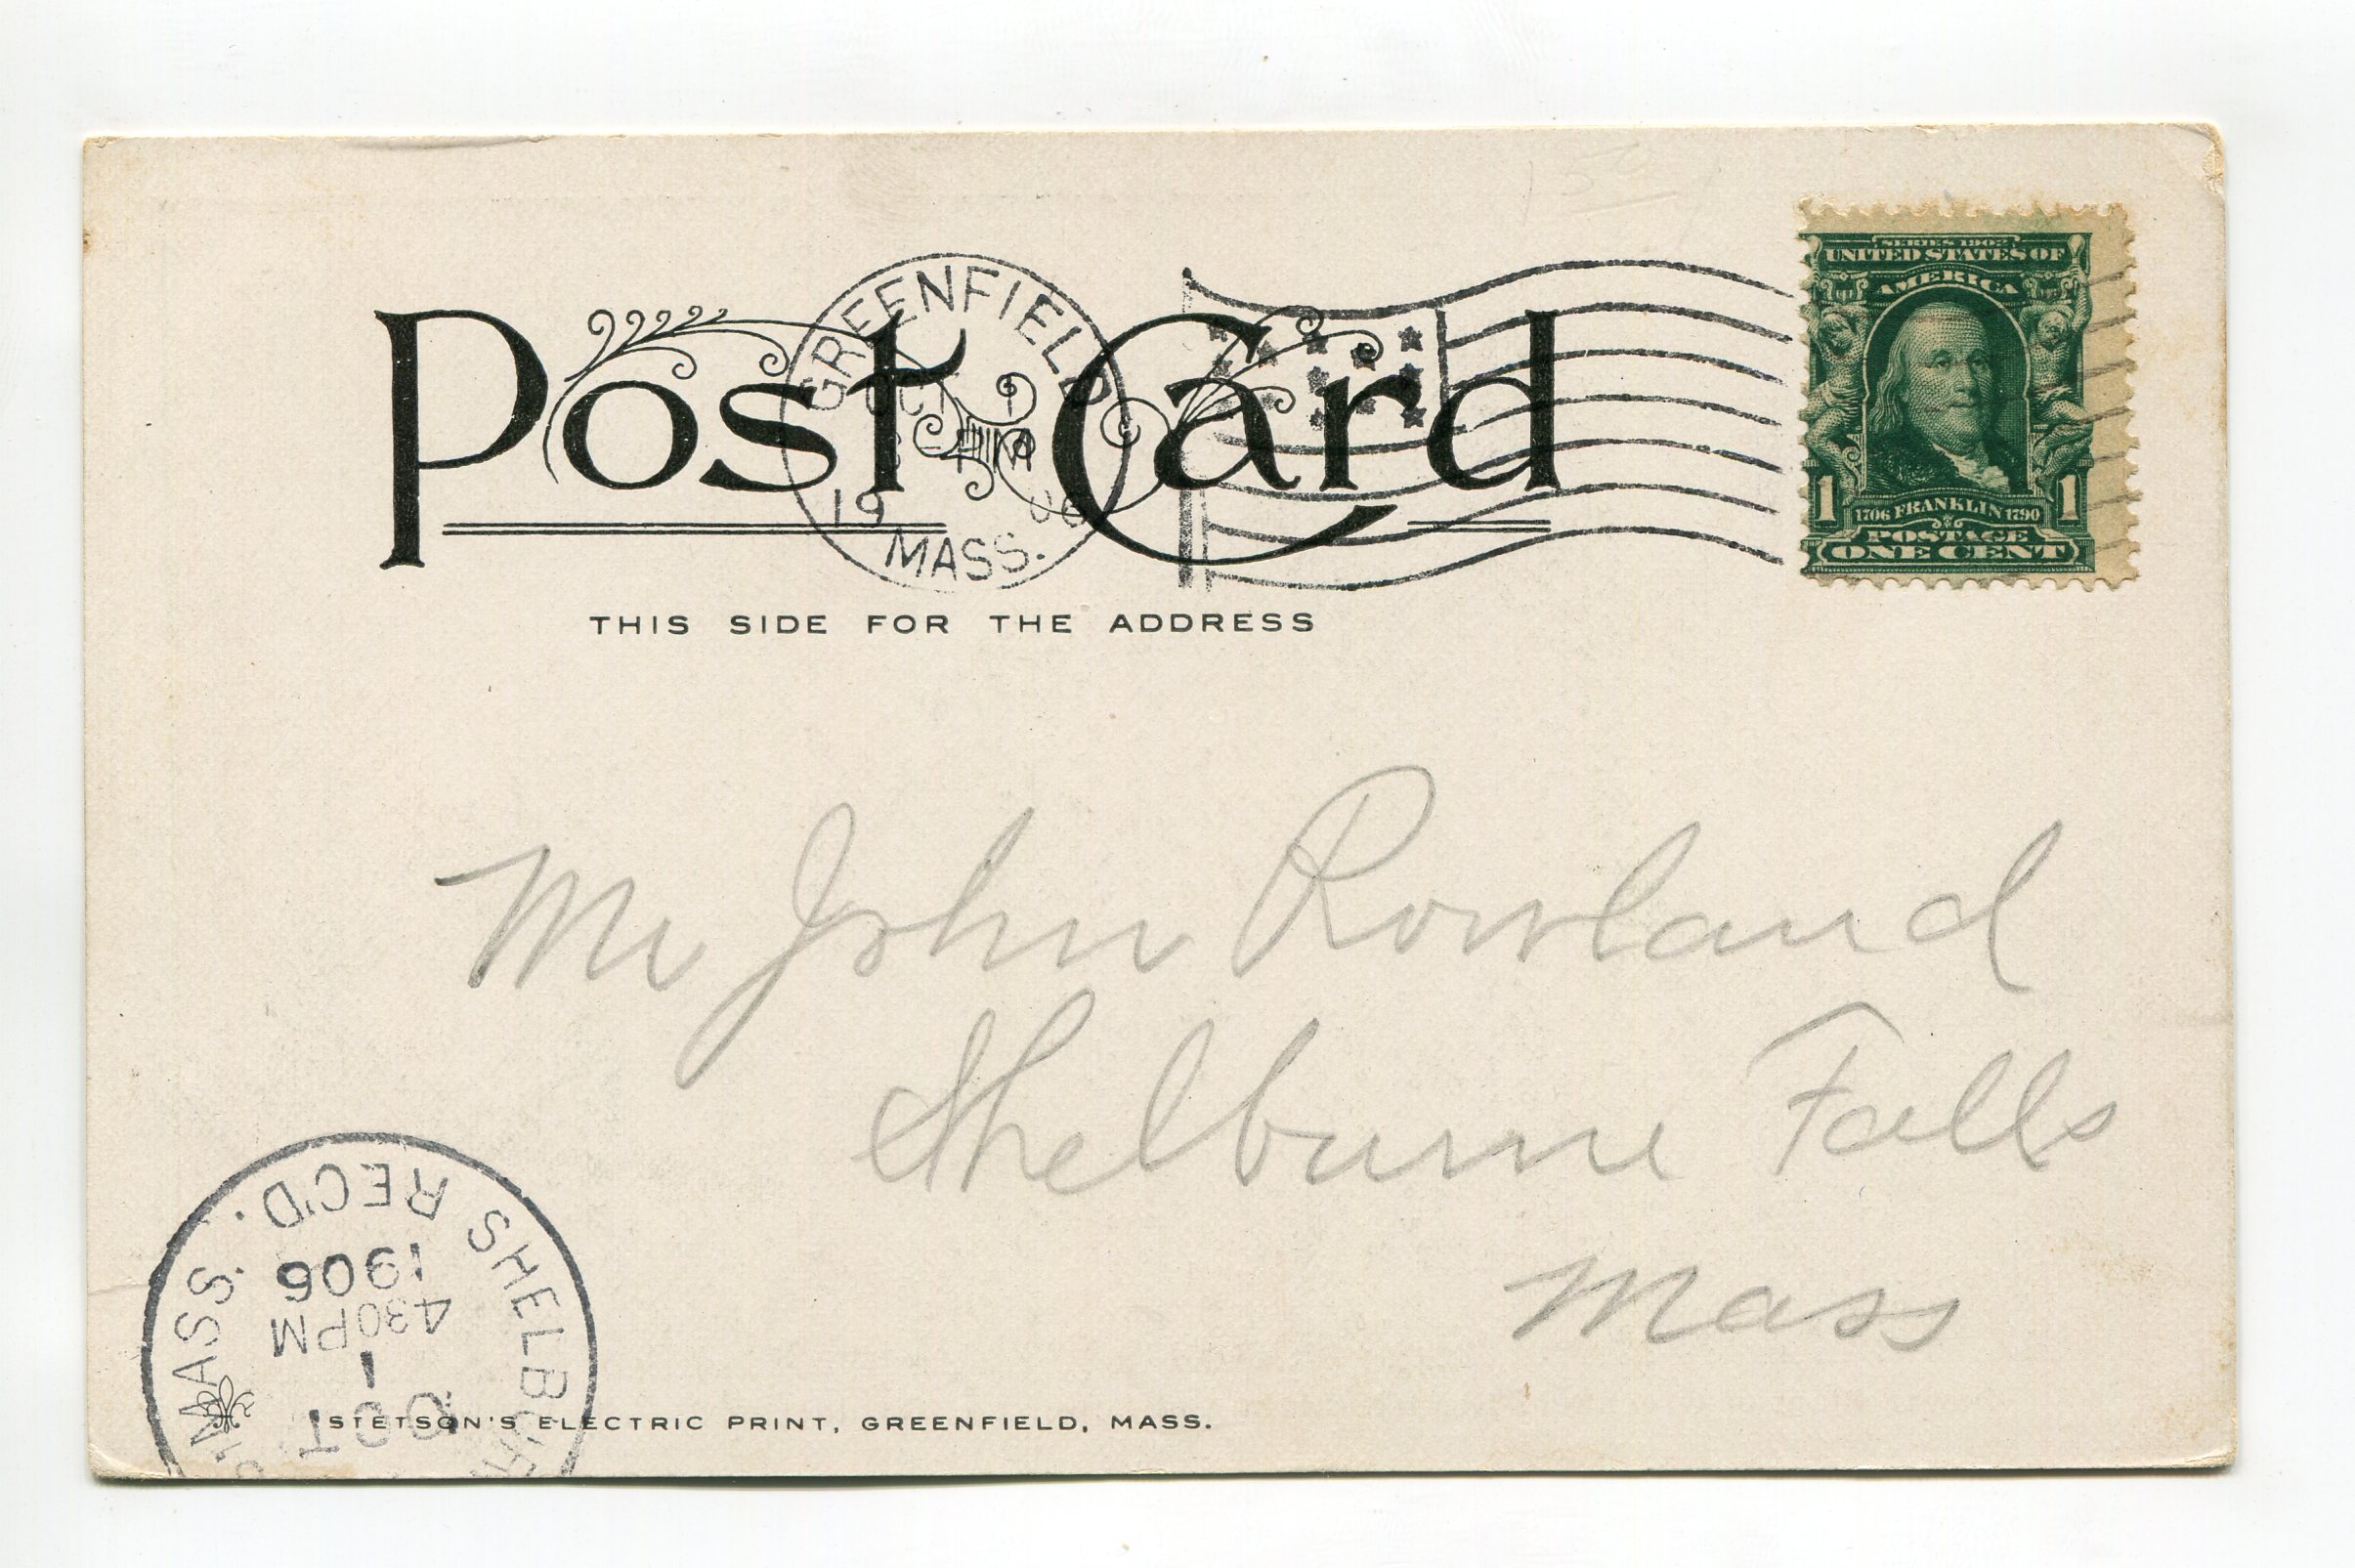 SERIES 1902
UNITED STATES OF
AMERICA
1706 FRANKLIN 1790
1 1
POSTAGE
ONE CENT
GREENFIELD
OCT 1
19 06
MASS.
Post Card
THIS SIDE FOR THE ADDRESS
Mr John Rowland
Shelburne Falls
Mass
SHELBUR
MASS.
REC'D.
1906
430PM
1
OCT
STETSON'S ELECTRIC PRINT, GREENFIELD, MASS.